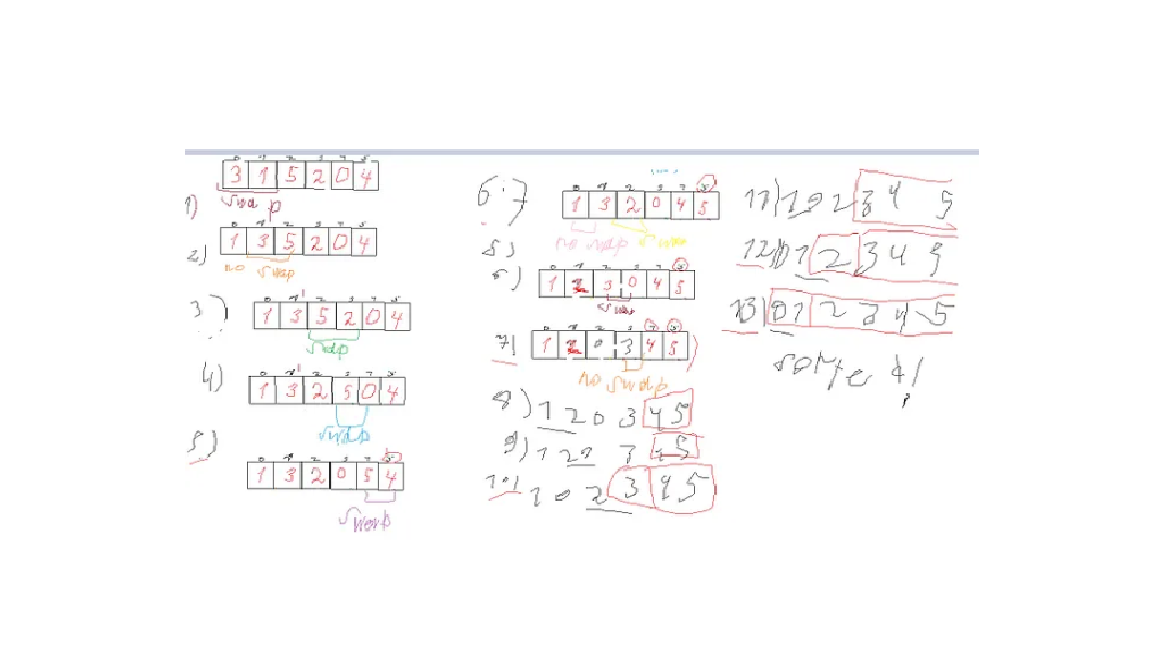 0 1 2 3 4 5
3 1 5 2 0 4
1) swap
0 1 2 3 4 5
1 3 5 2 0 4
2) no swap
0 1 2 3 4 5
3) 1 3 5 2 0 4
swap
0 1 2 3 4 5
4) 1 3 2 5 0 4
swap
5)
0 1 2 3 4 5
1 3 2 0 5 4
swap
0 1 2 3 4 5
1 3 2 0 4 5
no swap swap
5)
6) 1 2 3 0 4 5
swap
0 1 2 3 4 5
7) 1 2 0 3 4 5
no swap
8) 1 2 0 3 4 5
9) 1 2
10) 1 0 2 3 4 5
11) 1 0 2 3 4 5
12) 0 1 2 3 4 5
13) 0 1 2 3 4 5